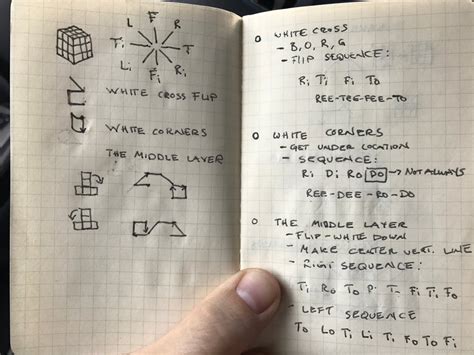 L F R
Ti T
Li Fi Ri
WHITE CROSS FLIP
WHITE CORNERS
THE MIDDLE LAYER
O WHITE CROSS
- B, O, R, G
- FLIP SEQUENCE:
Ri Ti Fi To
REE-TEE-FEE-TO
O WHITE CORNERS
- GET UNDER LOCATION
- SEQUENCE:
Ri Di Ro DO → NOT ALWAYS
REE-DEE-RO-DO
O THE MIDDLE LAYER
- FLIP-WHITE DOWN
- MAKE CENTER VERT. LINE
- SEQUENCE:
Ti Ro To Fi Ti Fo
- LEFT SEQUENCE
To Lo Ti Li Ti Fo To Fi